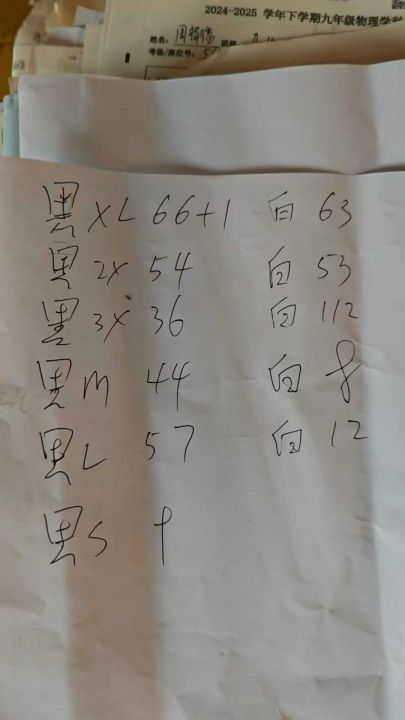 2024-2025 学年下学期九年级物理学科
姓名:
考场/座位号:
黑 XL 66+1 白 63
黑 2X 54 白 53
黑 3X 36 白 112
黑 m 44 白 8
黑 L 57 白 12
黑 S